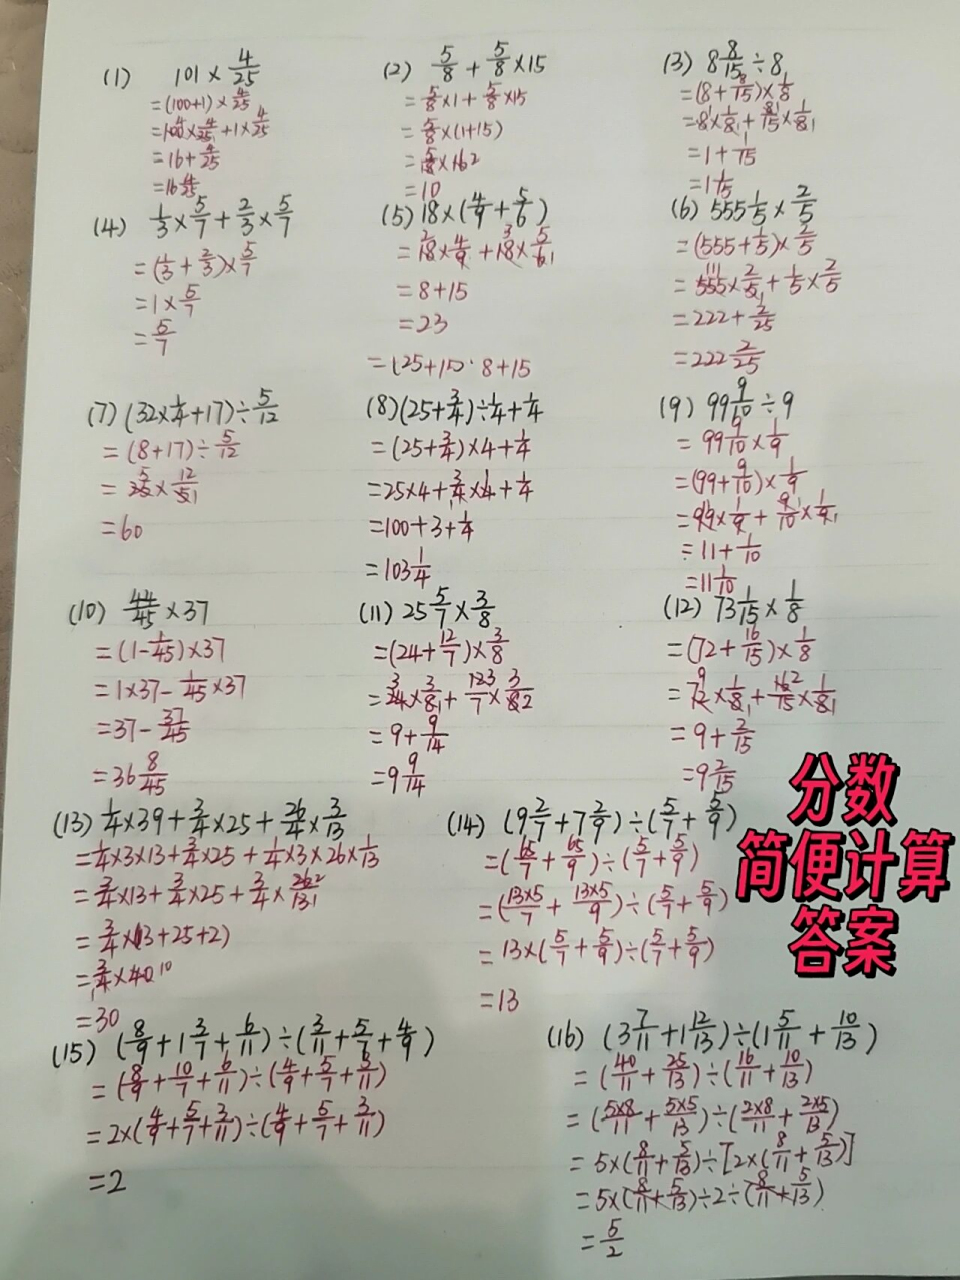 (1) 101×4/25
=(100+1)×4/25
=100×4/25+1×4/25
=16+4/25
=16 4/25
(2) 5/8+5/8×15
=5/8×1+5/8×15
=5/8×(1+15)
=5/8×16
=10
(3) 8 8/15÷8
=(8+8/15)×1/8
=8×1/8+8/15×1/8
=1+1/15
=1 1/15
(4) 1/3×5/7+2/3×5/7
=(1/3+2/3)×5/7
=1×5/7
=5/7
(5) 18×(4/9+5/6)
=18×4/9+18×5/6
=8+15
=23
(6) 555 1/5×2/5
=(555+1/5)×2/5
=555×2/5+1/5×2/5
=222+2/25
=222 2/25
(7) (32×1/4+17)÷5/12
=(8+17)÷5/12
=25×12/5
=60
(8) (25+3/4)÷1/4+1/4
=(25+3/4)×4+1/4
=25×4+3/4×4+1/4
=100+3+1/4
=103 1/4
(9) 99 9/10÷9
=99 9/10×1/9
=(99+9/10)×1/9
=99×1/9+9/10×1/9
=11+1/10
=11 1/10
(10) 44/45×37
=(1-1/45)×37
=1×37-1/45×37
=37-37/45
=36 8/45
(11) 25 5/7×3/8
=(24+12/7)×3/8
=24×3/8+12/7×3/8
=9+9/14
=9 9/14
(12) 73 1/15×1/8
=(72+16/15)×1/8
=72×1/8+16/15×1/8
=9+2/15
=9 2/15
(13) 1/4×39+3/4×25+26/4×3/13
=1/4×3×13+3/4×25+1/4×3×26×1/13
=3/4×13+3/4×25+3/4×26/13
=3/4×(13+25+2)
=3/4×40
=30
(14) (9 2/7+7 2/9)÷(5/7+5/9)
=(65/7+65/9)÷(5/7+5/9)
=(13×5/7+13×5/9)÷(5/7+5/9)
=13×(5/7+5/9)÷(5/7+5/9)
=13
分数
简便计算
答案
(15) (8/9+1 3/7+6/11)÷(3/11+5/7+4/9)
=(8/9+10/7+6/11)÷(4/9+5/7+3/11)
=2×(4/9+5/7+3/11)÷(4/9+5/7+3/11)
=2
(16) (3 7/11+1 12/13)÷(1 5/11+10/13)
=(40/11+25/13)÷(16/11+10/13)
=(5×8/11+5×5/13)÷(2×8/11+2×5/13)
=5×(8/11+5/13)÷[2×(8/11+5/13)]
=5×(8/11+5/13)÷2÷(8/11+5/13)
=5/2